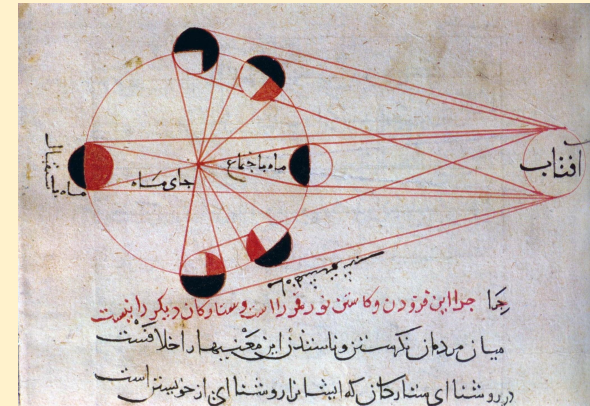 افتاب
ماه باجتماع
جای ماه
ماه باستقبال
چرا این فزودن و کاستن نور قمر را است و ستارکان دیکر را نیست
میان مردمان نکرستن و باستندن این معنیها را خلافست
در روشنا ای ستارکان که ایشانرا روشنا ای از خویشتن است